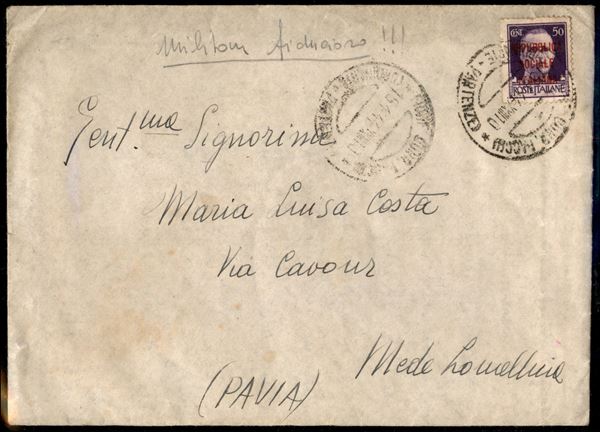 Militari fiduciosi !!!
CENT. 50
REPUBBLICA
SOCIALE
ITALIANA
POSTE ITALIANE
Gent.ma Signorina
Maria Luisa Costa
Via Cavour
Mede Lomellina
(PAVIA)